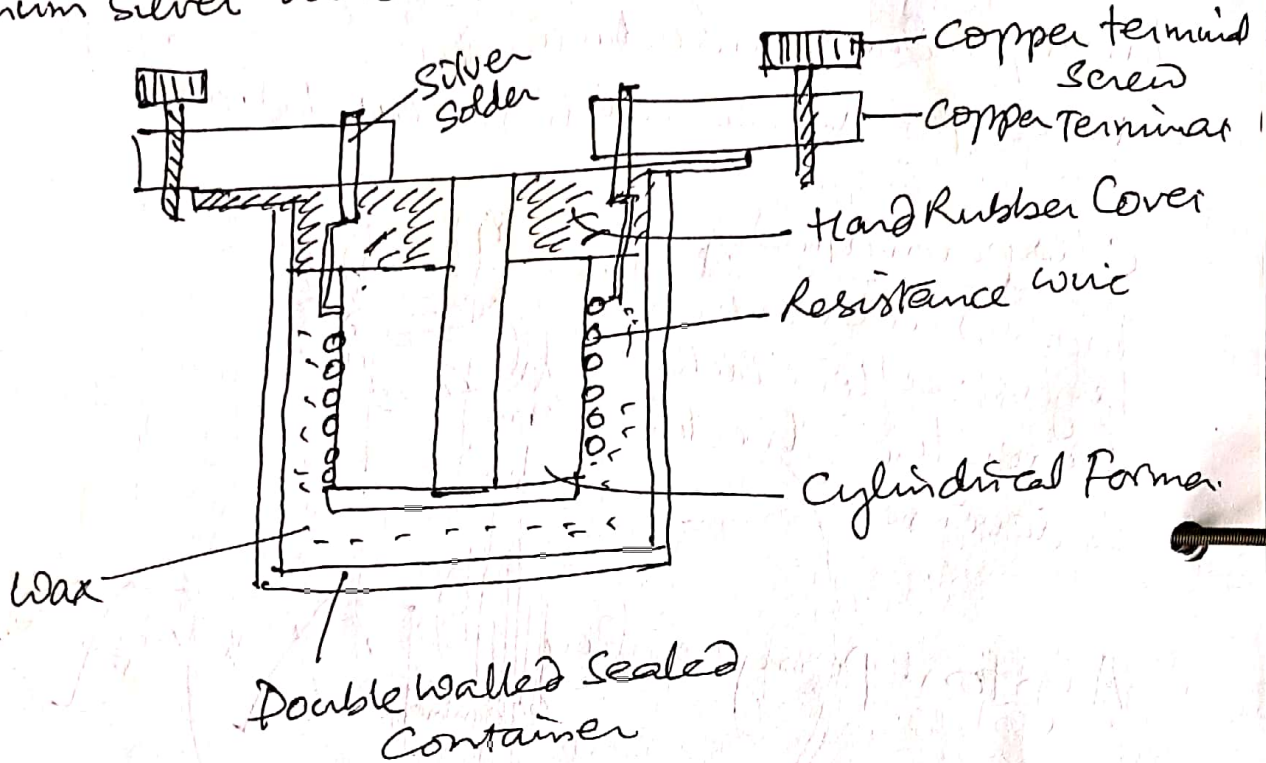 num Silver
Silver
Solder
Copper terminal
Screw
Copper Terminal
Hard Rubber Cover
Resistance wire
Cylindrical Former.
Wax
Double walled Sealed
Container